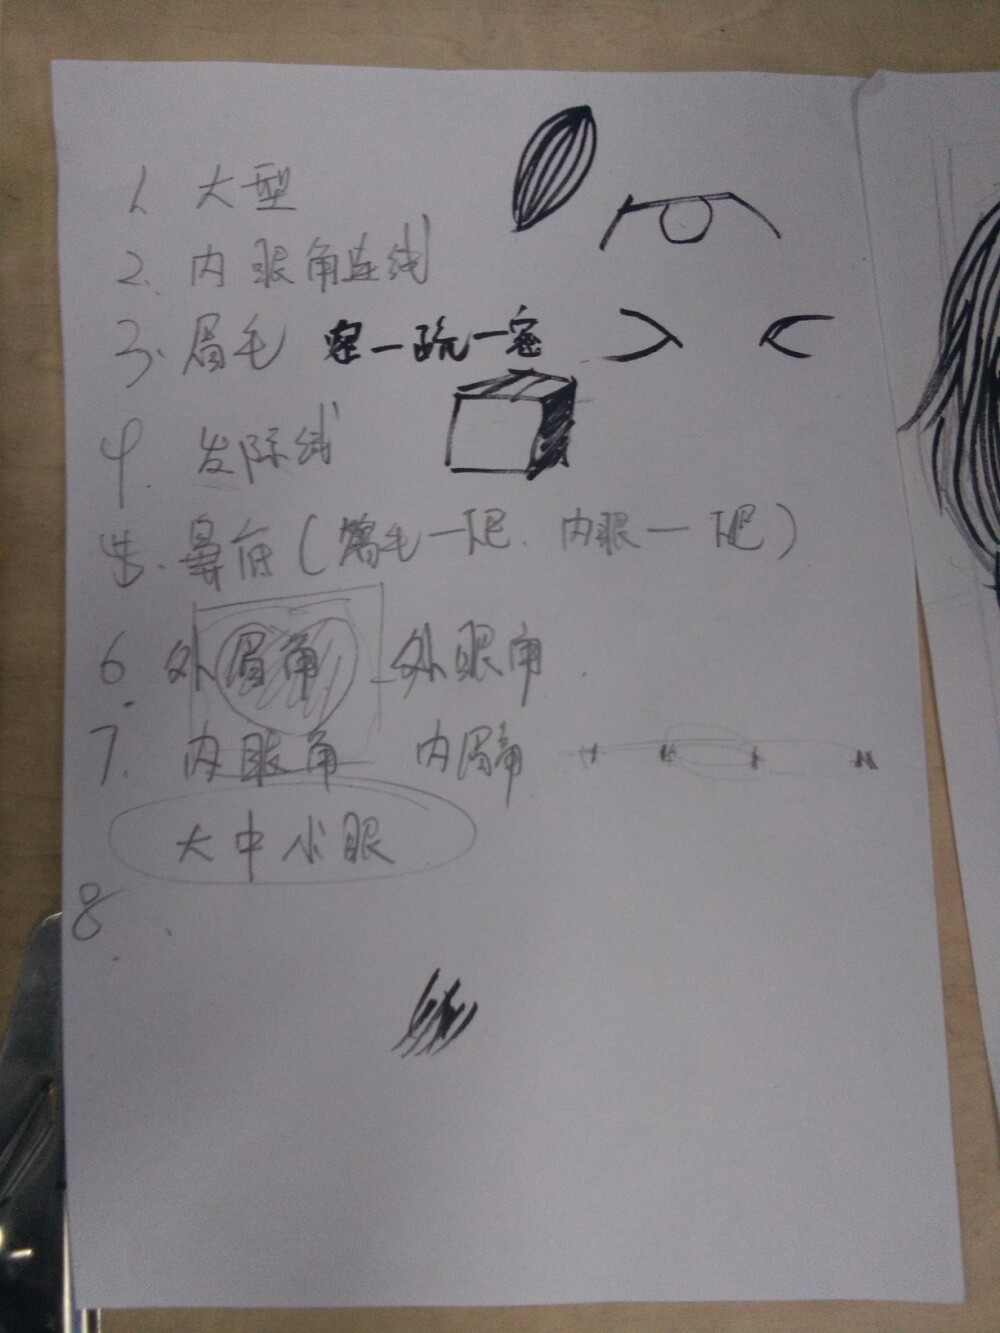 1. 大型
2. 内眼角连线
3. 眉毛 密一疏一密
4. 发际线
5. 鼻底(眉毛一下巴、内眼一下巴)
6. 外眉角 外眼角
7. 内眼角 内眉角
大中小眼
8.